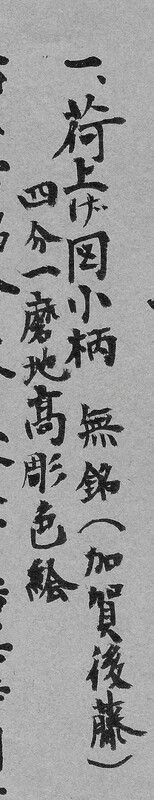 一、荷上げ図小柄 無銘(加賀後藤)
四分一磨地高彫色絵